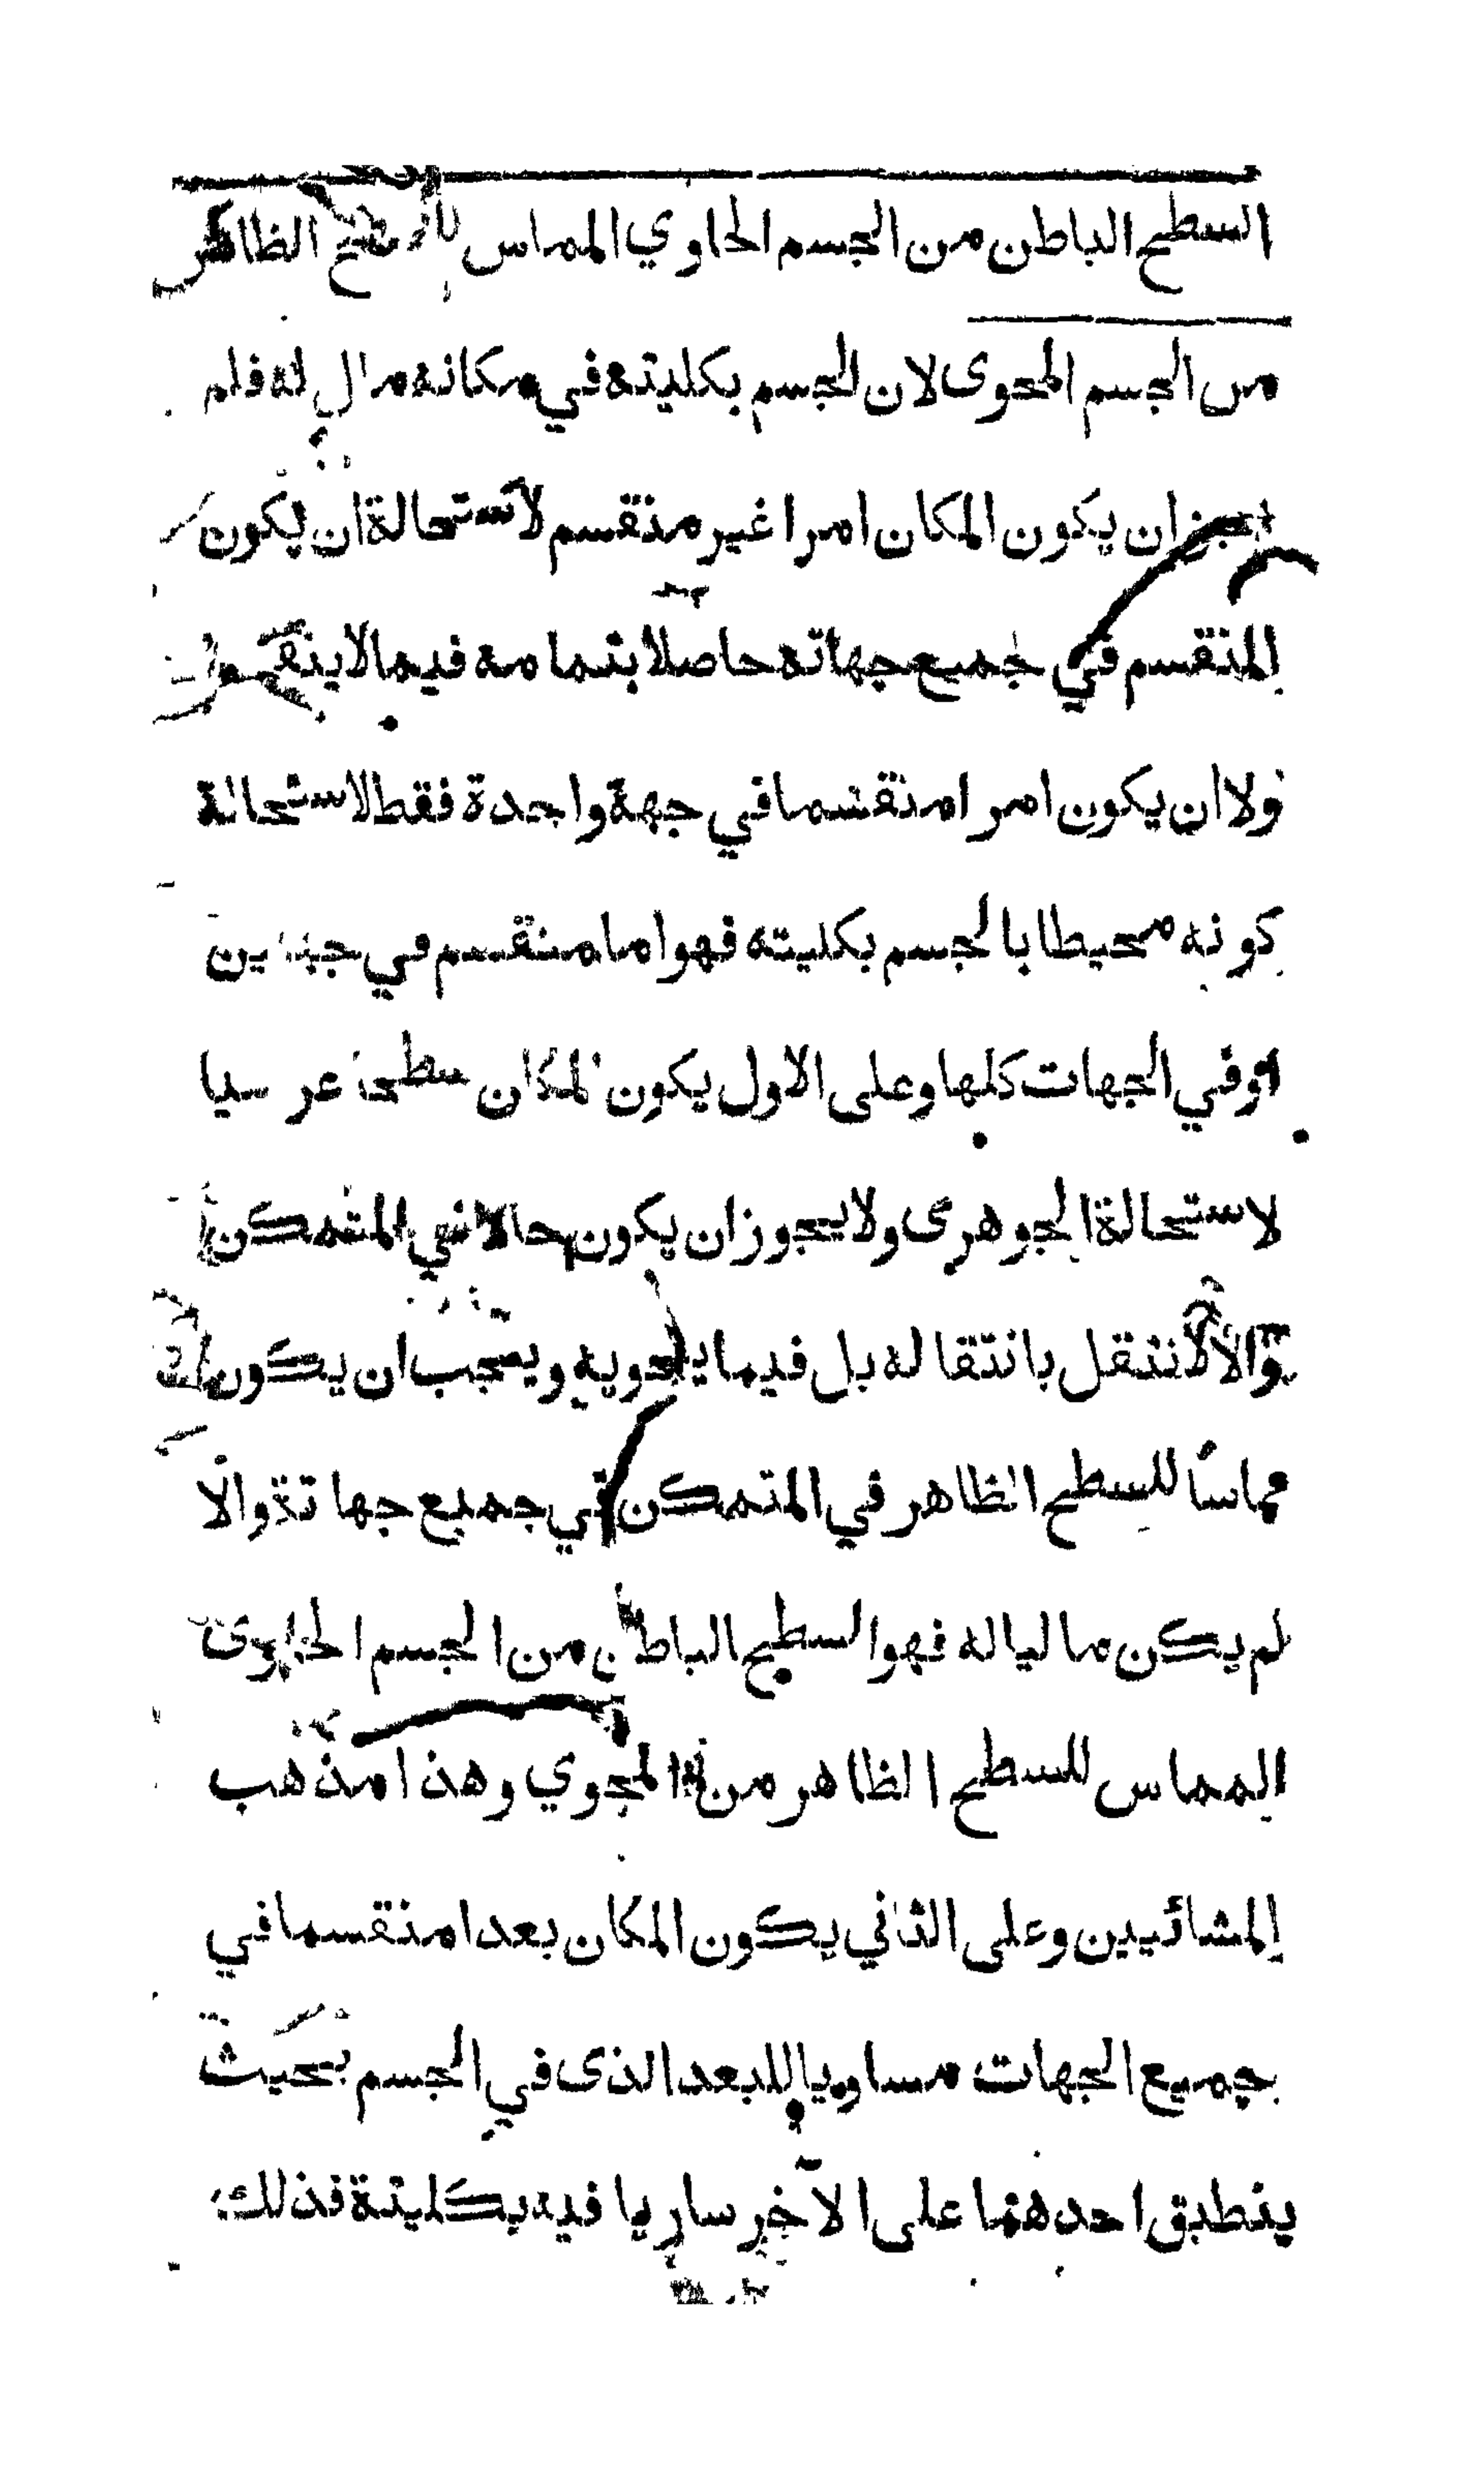 السطح الباطن من الجسم الحاوي المماس للسطح الظاهر
من الجسم المحوى لان الجسم بكليته في مكانه مال له فلم
يجز ان يكون المكان امرا غير منقسم لاستحالة ان يكون
المنقسم في جميع جهاته حاصلا بتمامه فيما لا ينقسم
ولا ان يكون امرا منقسما في جهة واحدة فقط لاستحالة
كونه محيطا بالجسم بكليته فهو اما منقسم في جهتين
او في الجهات كلها وعلى الاول يكون المكان سطحا عرضيا
لاستحالة الجوهرى ولا يجوز ان يكون حالا في المتمكن
والا لانتقل بانتقاله بل فيما يحويه ويجب ان يكون
مماسا للسطح الظاهر في المتمكن في جميع جهاته والا
لم يكن ماليا له فهو السطح الباطن من الجسم الحاوى
المماس للسطح الظاهر من المحوي وهذا مذهب
المشائيين وعلى الثاني يكون المكان بعدا منقسما في
جميع الجهات مساويا للبعد الذى في الجسم بحيث
ينطبق احدهما على الآخر ساريا فيه بكليته فذلك